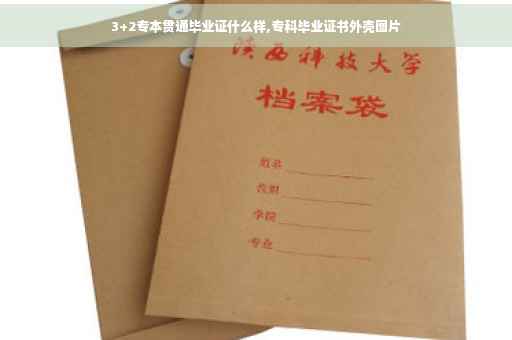 3+2专本贯通毕业证什么样,专科毕业证书外壳图片
陕西科技大学
档案袋
姓名
学院
专业